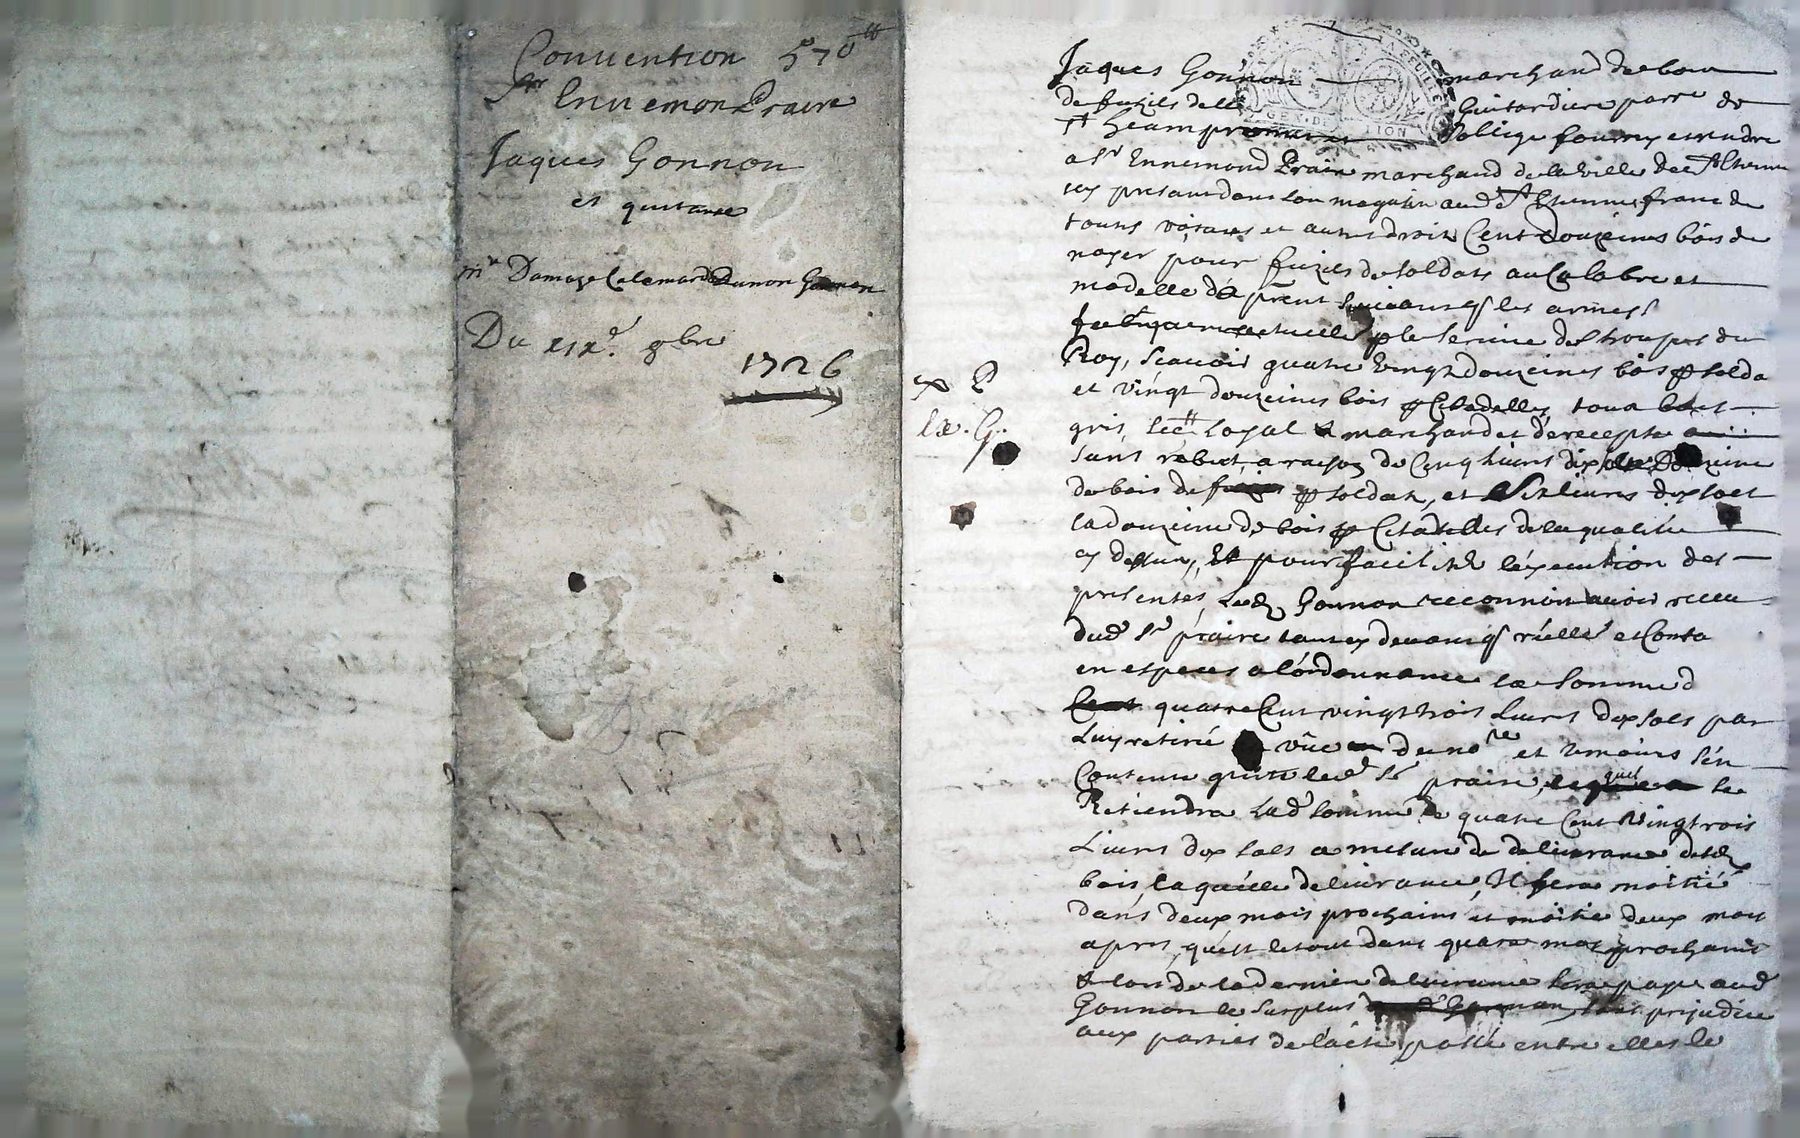 Convention 570ᵗᵗ
Sʳ Ennemon Praire
Jaques Gonnon
et quitance
mᵉ Damaze Calemard Gonnon
Du xixᵉ. 9bre
1726
Jaques Gonnon marchand de bois
de fuzils de la Guitardiere parre de
Sᵗ heam promet s'oblige fournir et rendre
a Sʳ Ennemond Praire marchand de la ville de Sᵗ Etienne
icy present dans son magasin aud Sᵗ Etienne franc de
touts voitures et autres droits Cent Douzeines bois de
noyer pour fuzils de soldats au Calabre et
modelle du pñt les armes
le service des troupes du
Roy, scavoir quatre vingt douzeines bois p soldat
et vingt douzeines bois p Citadelles tous bois
gris, sec loyal & marchand et de recepte
sans rebut, a raison de Cinq livres dix Douzeine
de bois de fuzils p soldats, et Six livres dix sols
la douzeine de bois p Citadelles de la qualitée
cy dessus, Et pour faciliter l'execution des
presentes, Led Gonnon reconnoit avoir receu
dud Sʳ praire tant cy devant q reelle et Conta
en especes a l'ordonnance la somme d
quatre Cent vingt trois livres dix sols par
Luy retirée vüe de noʳᵉ et temoins s'en
Contente quitte led Sʳ praire, lequel se
Retiendra lad somme de quatre Cent vingt trois
Livres dix sols a mesure de delivrance desd
bois, laquelle delivrance, Il fera moitié
dans deux mois prochains et moitie deux mois
apres, qu'est le tout dans quatre mois prochains
& lors de la derniere delivrance sera payé aud
Gonnon le surplus sans prejudice
aux parties de l'acte passé entre elles le
ex P
Ex. G.